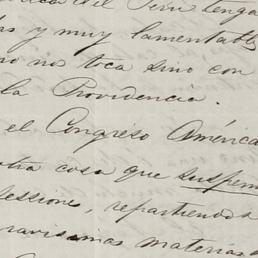 del Perú tenga
y muy lamentabl
no toca sino con
la Providencia.
el Congreso América
otra cosa que suspen
sesiones, repartiendo
gravisimas materias